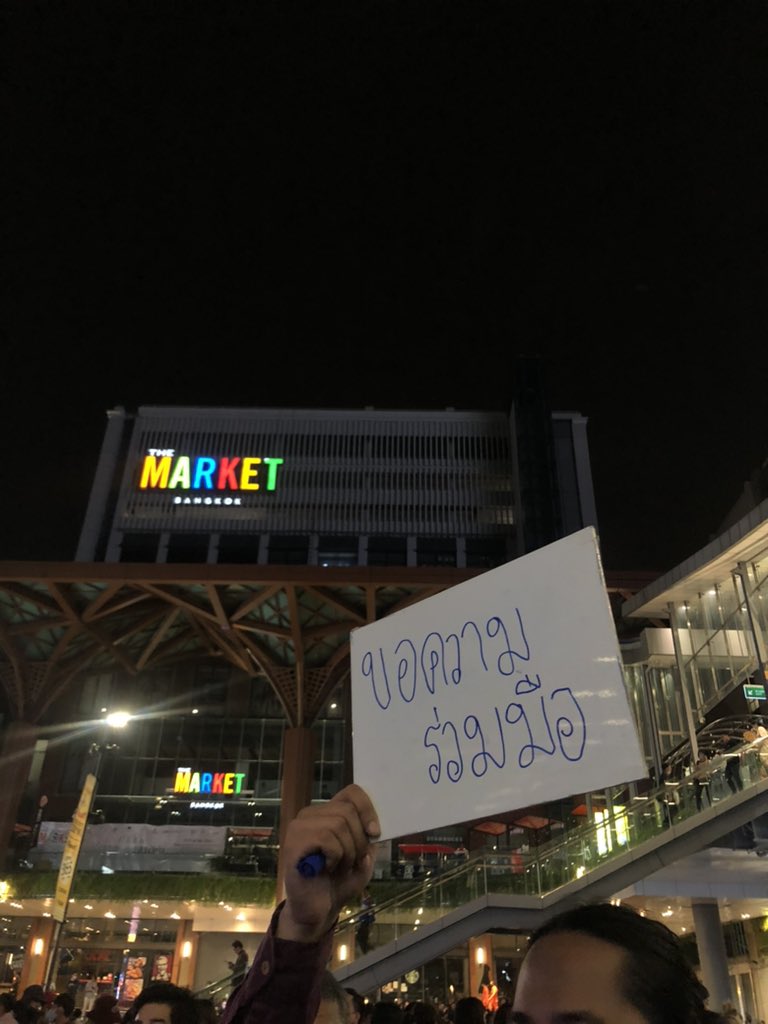 THE
MARKET
BANGKOK
ขอความ
ร่วมมือ
THE
MARKET
BANGKOK
STARBUCKS